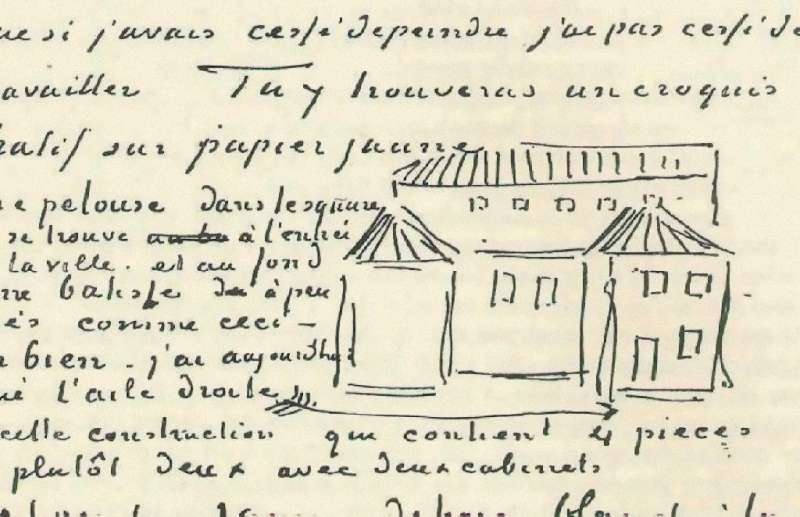 si j'avais cessé de peindre j'ai pas cessé de
availler Tu y trouveras un croquis
sur papier jaune
pelouse dans le square
se trouve à l'entrée
la ville. et au fond
batisse à peu
ès comme ceci –
bien. j'ai aujourd'hui
l'aile droite
cette construction qui contient 4 pieces
plutôt deux avec deux cabinets